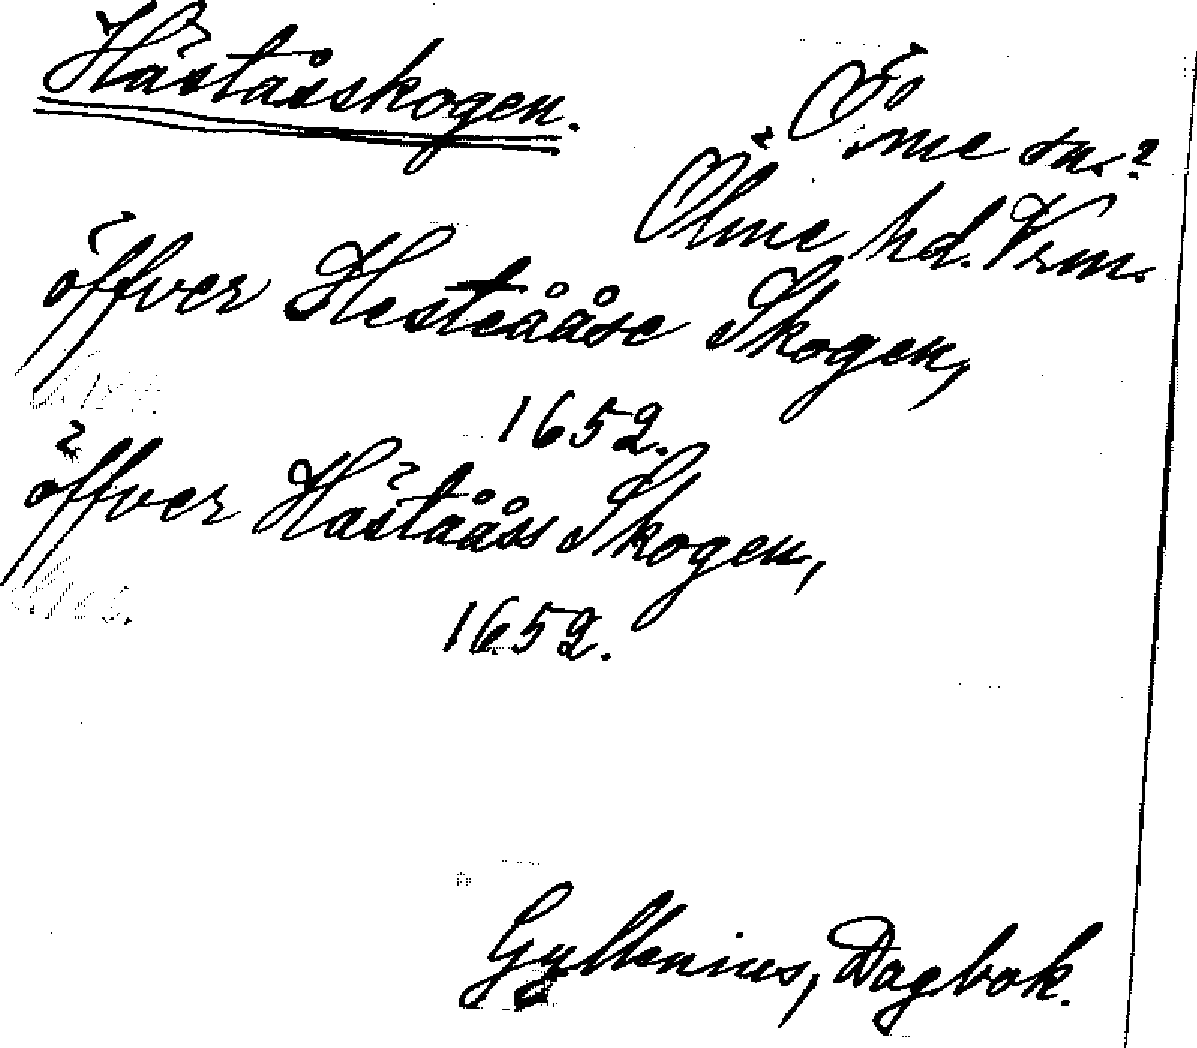 Häståsskogen.
Ölme sn.?
Ölme hd. Vrm.
öffver Hesteååse Skogen,
1652.
öffver Häståås Skogen,
1652.
Gyllenius, Dagbok.